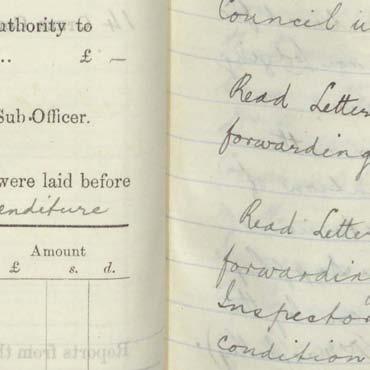 uthority to
.. £ —
Sub-Officer.
were laid before
enditure
Amount
£ s. d.
Reports from th
Council
Read Letter
forwarding
Read Lette
forwardin
Inspector
condition